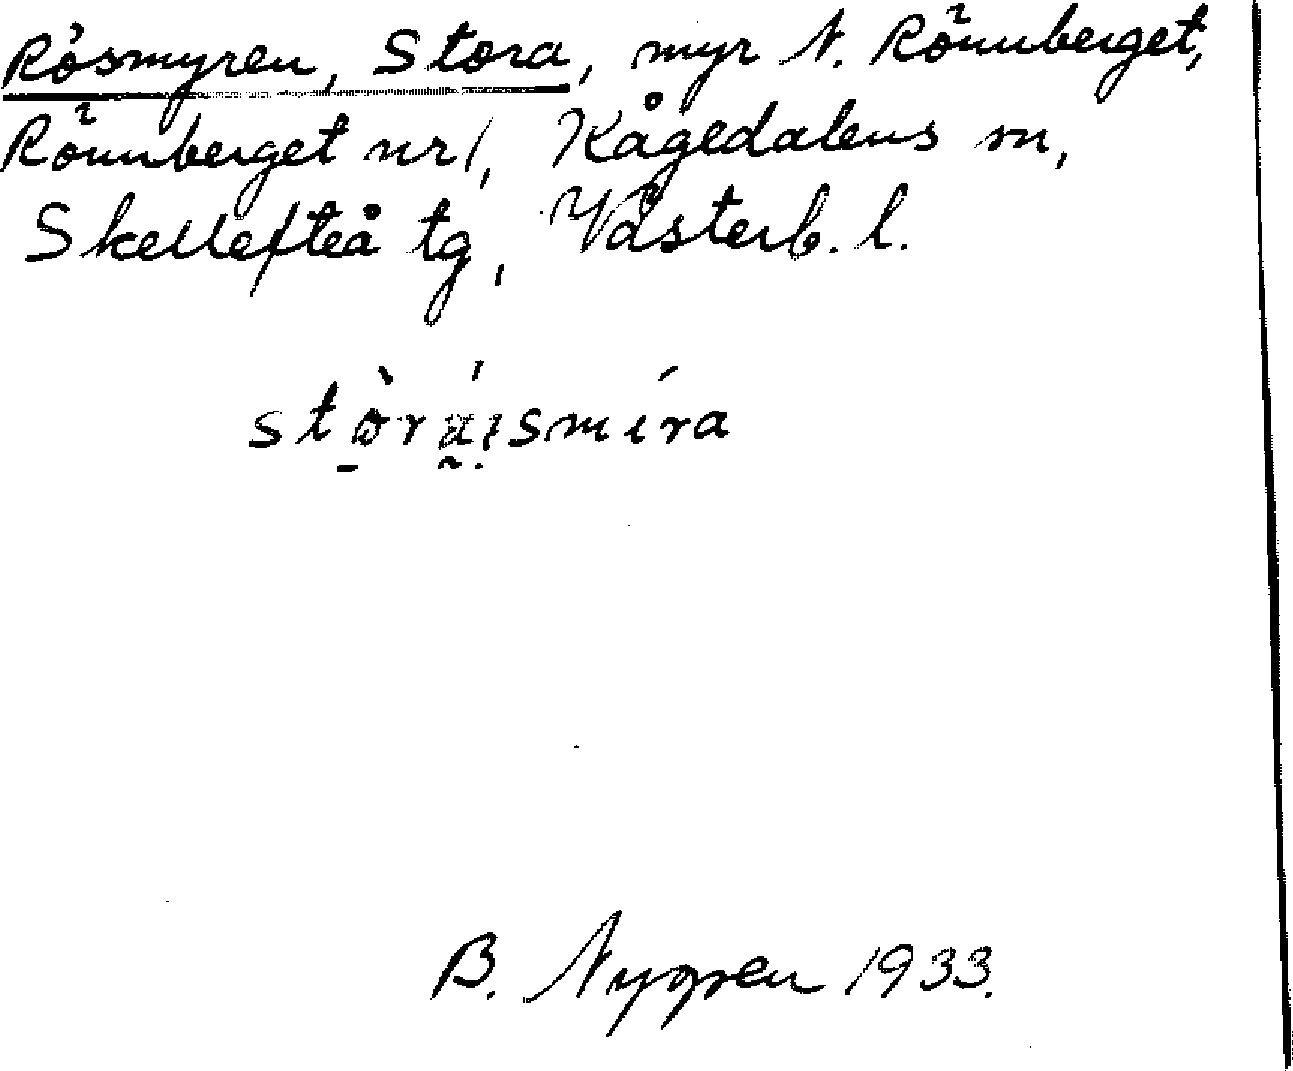 Rösmyren, Stora, myr N. Rönnberget,
Rönnberget nr 1, Kågedalens sn,
Skellefteå tg, Västerb. l.
B. Nygren 1933.